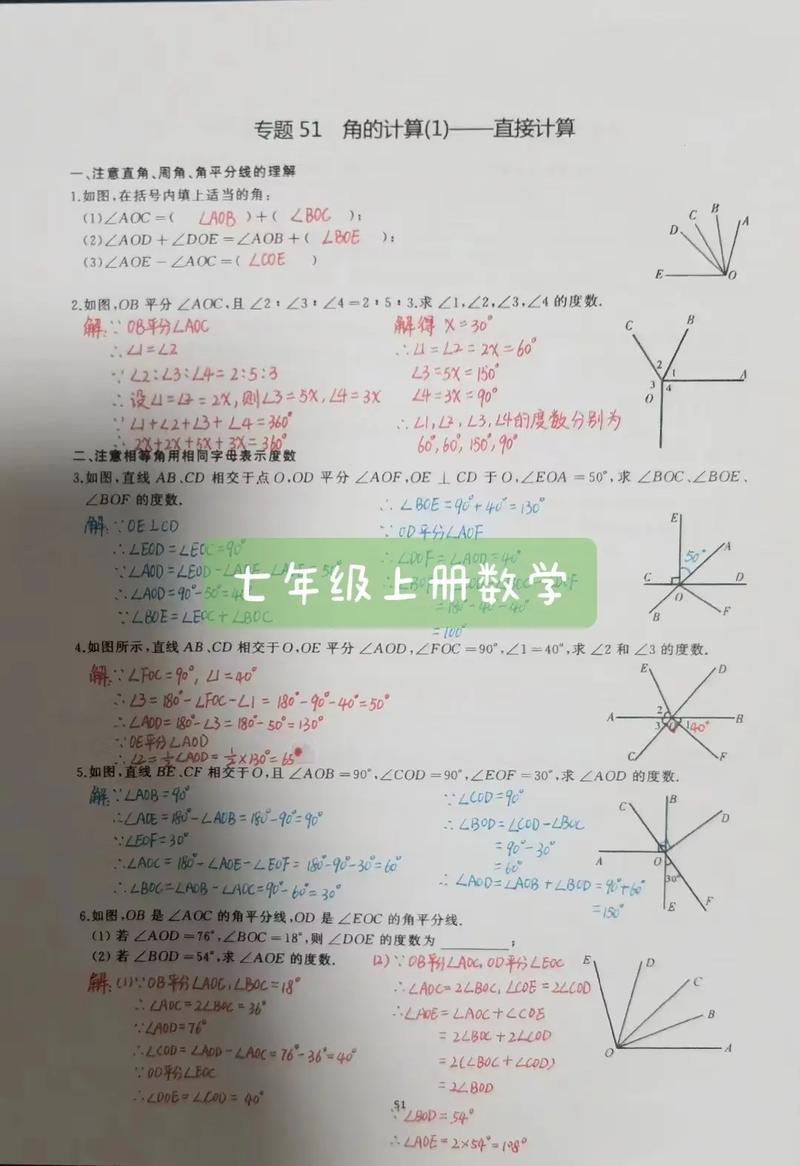 专题 51 角的计算(1)——直接计算
一、注意直角、周角、角平分线的理解
1.如图,在括号内填上适当的角:
(1)∠AOC=( ∠AOB )+( ∠BOC );
(2)∠AOD+∠DOE=∠AOB+( ∠BOE );
(3)∠AOE-∠AOC=( ∠COE )
D C B A
E O
2.如图,OB 平分 ∠AOC,且 ∠2:∠3:∠4=2:5:3.求 ∠1,∠2,∠3,∠4 的度数.
解:∵OB平分∠AOC
∴∠1=∠2
∵∠2:∠3:∠4=2:5:3
∴设∠1=∠2=2X,则∠3=5X,∠4=3X
∵∠1+∠2+∠3+∠4=360°
∴2X+2X+5X+3X=360°
解得 X=30°
∴∠1=∠2=2X=60°
∠3=5X=150°
∠4=3X=90°
∴∠1,∠2,∠3,∠4的度数分别为
60°,60°,150°,90°
C B
2 1 A
3 4
O
二、注意相等角用相同字母表示度数
3.如图,直线 AB、CD 相交于点 O,OD 平分 ∠AOF,OE ⊥ CD 于 O,∠EOA=50°,求 ∠BOC、∠BOE、
∠BOF 的度数.
解:∵OE⊥CD
∴∠EOD=∠EOC=90°
∵∠AOD=∠EOD-∠AOE
∴∠AOD=90°-50°=40°
∵∠BOE=∠EOC+∠BOC
∴∠BOE=90°+40°=130°
∵OD平分∠AOF
∴∠DOF=∠AOD=40°
=180°-40°-40°
=100°
七年级上册数学
E
50° A
C D
O
B F
4.如图所示,直线 AB、CD 相交于 O,OE 平分 ∠AOD,∠FOC=90°,∠1=40°,求 ∠2 和 ∠3 的度数.
解:∵∠FOC=90°,∠1=40°
∴∠3=180°-∠FOC-∠1=180°-90°-40°=50°
∴∠AOD=180°-∠3=180°-50°=130°
∵OE平分∠AOD
∴∠2=½∠AOD=½×130°=65°
E D
A 2 B
3 1 40°
C F
5.如图,直线 BE、CF 相交于 O,且 ∠AOB=90°,∠COD=90°,∠EOF=30°,求 ∠AOD 的度数.
解:∵∠AOB=90°
∴∠AOE=180°-∠AOB=180°-90°=90°
∵∠EOF=30°
∴∠AOC=180°-∠AOE-∠EOF=180°-90°-30°=60°
∴∠BOC=∠AOB-∠AOC=90°-60°=30°
∵∠COD=90°
∴∠BOD=∠COD-∠BOC
=90°-30°
=60°
∴∠AOD=∠AOB+∠BOD=90°+60°
=150°
C B D
A O
30°
E F
6.如图,OB 是 ∠AOC 的角平分线,OD 是 ∠EOC 的角平分线.
(1)若 ∠AOD=76°,∠BOC=18°,则 ∠DOE 的度数为________;
(2)若 ∠BOD=54°,求 ∠AOE 的度数.
解:(1)∵OB平分∠AOC,∠BOC=18°
∴∠AOC=2∠BOC=36°
∵∠AOD=76°
∴∠COD=∠AOD-∠AOC=76°-36°=40°
∵OD平分∠EOC
∴∠DOE=∠COD=40°
(2)∵OB平分∠AOC,OD平分∠EOC
∴∠AOC=2∠BOC,∠COE=2∠COD
∴∠AOE=∠AOC+∠COE
=2∠BOC+2∠COD
=2(∠BOC+∠COD)
=2∠BOD
∵∠BOD=54°
∴∠AOE=2×54°=108°
E D C
B
O A
51